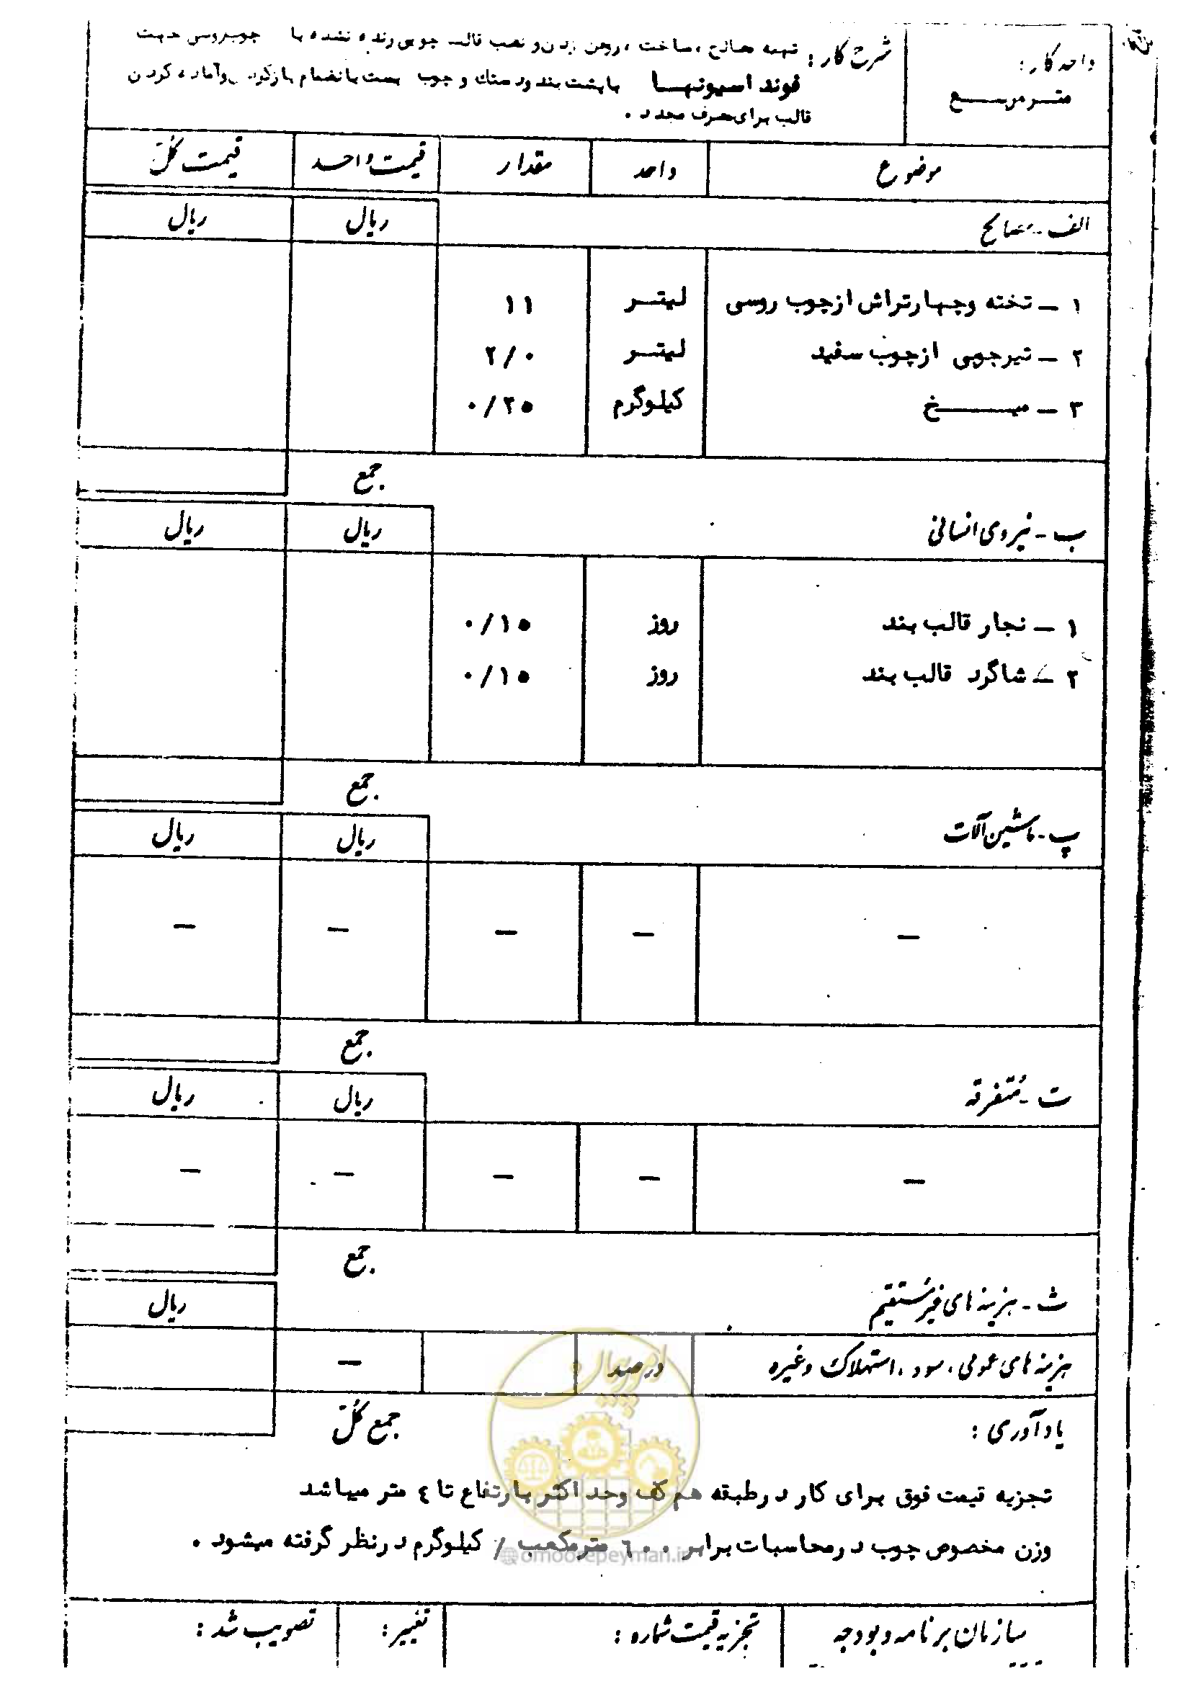 واحد کار :
متر مربع
شرح کار : تهیه مصالح ، ساخت ، روغن زدن و نصب قالب چوبی رنده نشده با چوب روسی جهت
فونداسیونها با پشت بند و دستك و چوب بست بانضمام بازکردن و آماده کردن
قالب برای صرف مجدد .
موضوع واحد مقدار قیمت واحد قیمت کل
الف - مصالح ریال ریال
۱ - تخته وچهارتراش ازچوب روسی لیتر ۱۱
۲ - تیرچوبی ازچوب سفید لیتر ۲/۰
۳ - میخ کیلوگرم ۰/۲۵
جمع
ب - نیروی انسانی ریال ریال
۱ - نجار قالب بند روز ۰/۱۵
۲ - شاگرد قالب بند روز ۰/۱۵
جمع
پ - ماشین آلات ریال ریال
- - - - -
جمع
ت - متفرقه ریال ریال
- - - - -
جمع
ث - هزینه های غیرمستقیم ریال
هزینه های عمومی ، سود ، استهلاک وغیره درصد -
یادآوری : جمع کل
تجزیه قیمت فوق برای کار درطبقه هم کف وحداکثر بارتفاع تا ٤ متر میباشد
وزن مخصوص چوب درمحاسبات برابر ٦۰۰ مترمکعب / کیلوگرم درنظر گرفته میشود .
امور پیمان
@omoorepeyman.ir
سازمان برنامه وبودجه تجزیه قیمت شماره : تغییر : تصویب شد :